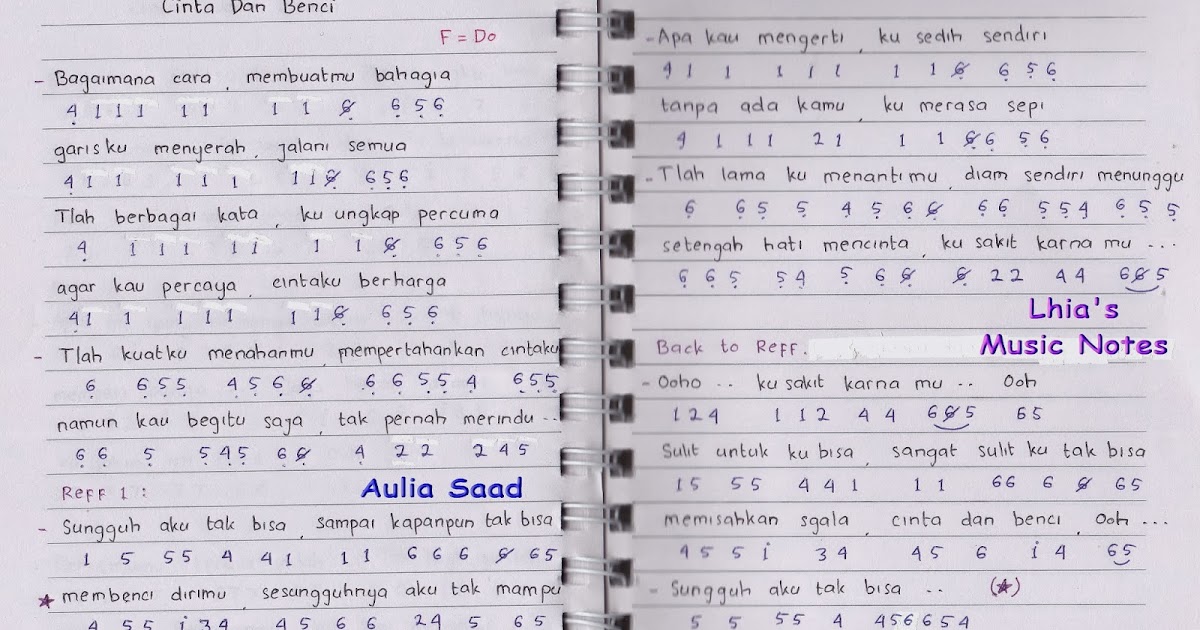 Cinta Dan Benci
F = Do
- Bagaimana cara, membuatmu bahagia
4 1 1 1 1 1 1 1 6 6 5 6
garisku menyerah, jalani semua
4 1 1 1 1 1 1 1 6 6 5 6
Tlah berbagai kata, ku ungkap percuma
4 1 1 1 1 1 1 1 6 6 5 6
agar kau percaya, cintaku berharga
4 1 1 1 1 1 1 1 6 6 5 6
- Tlah kuatku menahanmu, mempertahankan cintaku
6 6 5 5 4 5 6 6 6 6 5 5 4 6 5 5
namun kau begitu saja, tak pernah merindu ..
6 6 5 5 4 5 6 6 4 2 2 2 4 5
Reff 1 :
Aulia Saad
- Sungguh aku tak bisa, sampai kapanpun tak bisa
1 5 5 5 4 4 1 1 1 6 6 6 6 6 5
★ membenci dirimu, sesungguhnya aku tak mampu
4 5 5 i 3 4 4 5 6 6 2 4 5 6 5
- Apa kau mengerti, ku sedih sendiri
4 1 1 1 1 1 1 1 6 6 5 6
tanpa ada kamu, ku merasa sepi
4 1 1 1 2 1 1 1 6 6 5 6
- Tlah lama ku menantimu, diam sendiri menunggu
6 6 5 5 4 5 6 6 6 6 5 5 4 6 5 5
setengah hati mencinta, ku sakit karna mu ...
6 6 5 5 4 5 6 6 6 2 2 4 4 6 6 5
Lhia's
Back to Reff.
Music Notes
- Ooho .. ku sakit karna mu .. Ooh
1 2 4 1 1 2 4 4 6 6 5 6 5
Sulit untuk ku bisa, sangat sulit ku tak bisa
1 5 5 5 4 4 1 1 1 6 6 6 6 6 5
memisahkan sgala, cinta dan benci, Ooh ...
4 5 5 i 3 4 4 5 6 i 4 6 5
- Sungguh aku tak bisa .. (★)
5 5 5 5 4 4 5 6 6 5 4